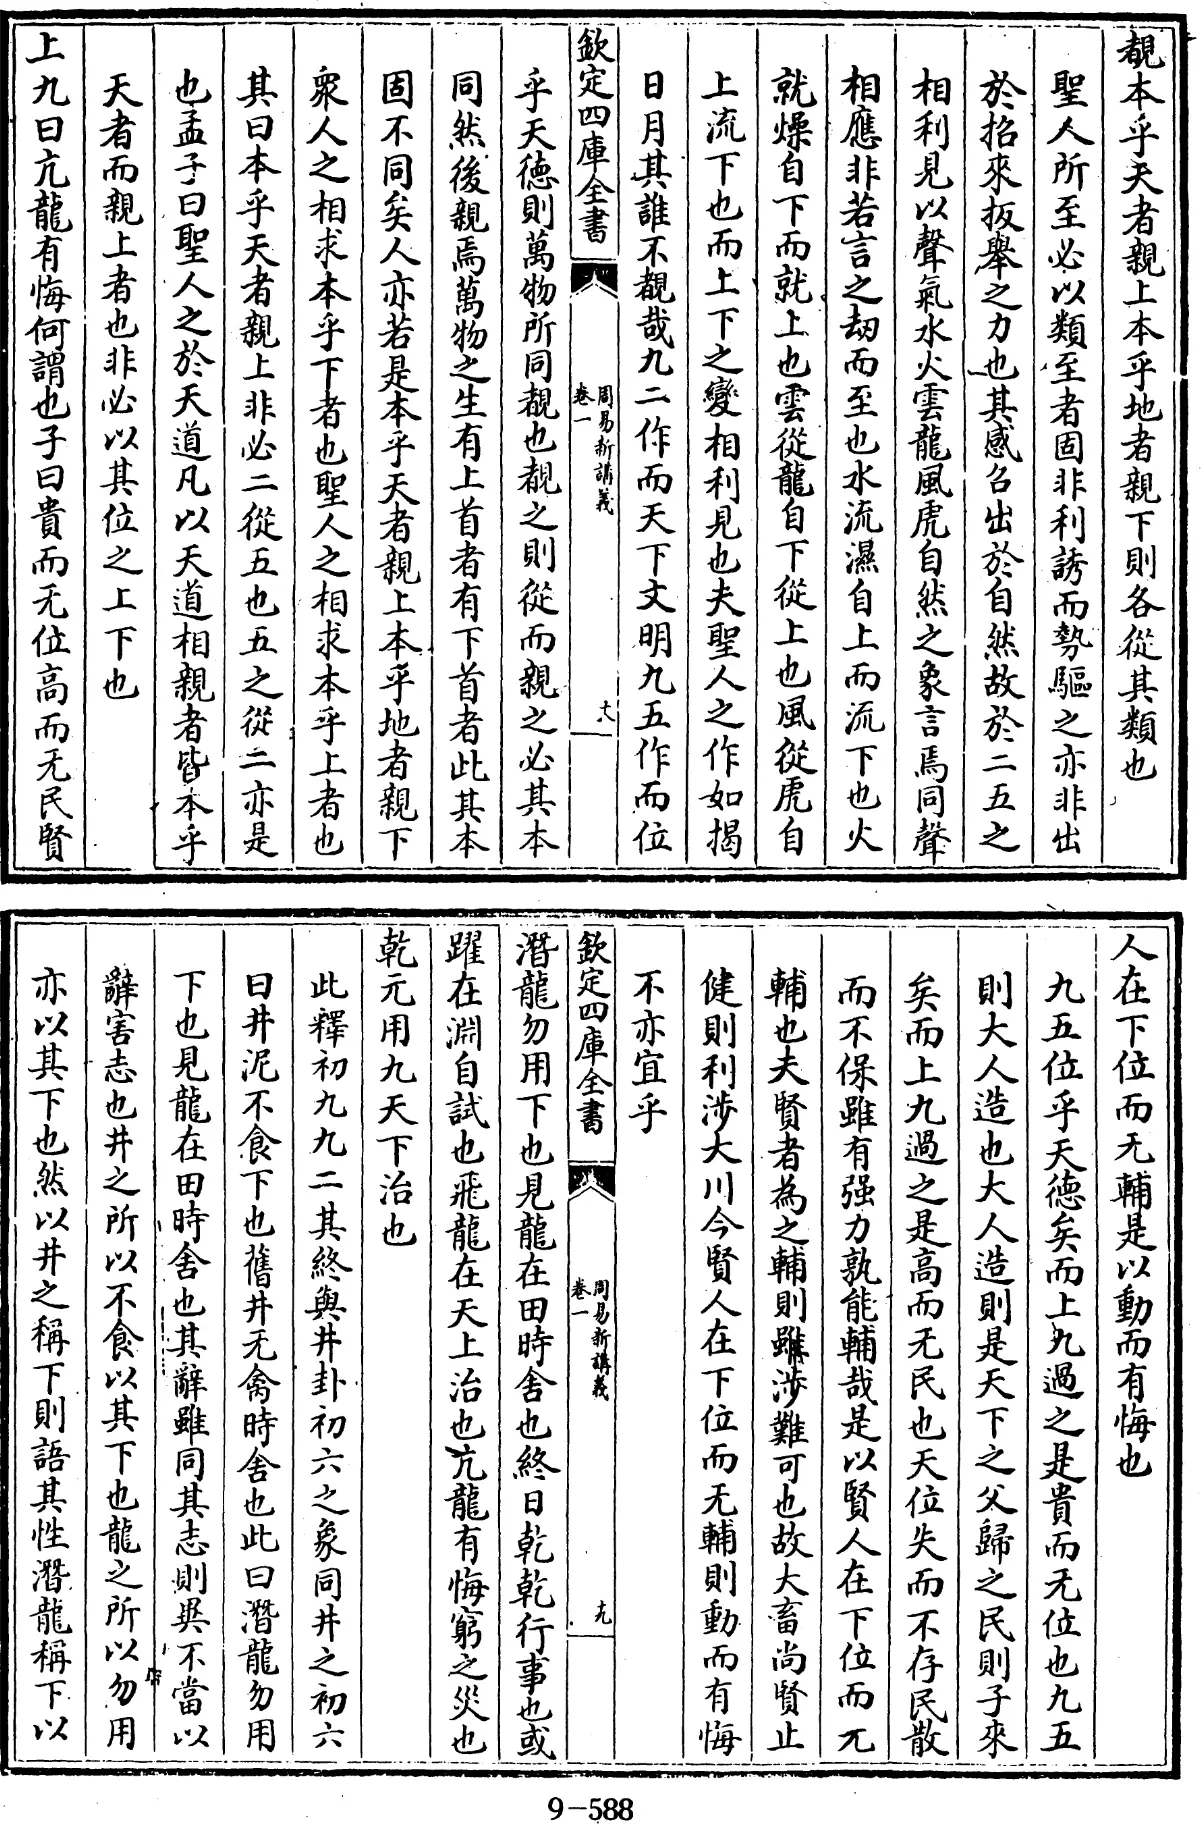 覩本乎天者親上本乎地者親下則各從其類也
聖人所至必以類至者固非利誘而勢驅之亦非出
於招來扳舉之力也其感召出於自然故於二五之
相利見以聲氣水火雲龍風虎自然之象言焉同聲
相應非若言之劫而至也水流濕自上而流下也火
就燥自下而就上也雲從龍自下從上也風從虎自
上流下也而上下之變相利見也夫聖人之作如揭
日月其誰不覩哉九二作而天下文明九五作而位
欽定四庫全書
周易新講義
卷一
十八
乎天德則萬物所同覩也覩之則從而親之必其本
同然後親焉萬物之生有上首者有下首者此其本
固不同矣人亦若是本乎天者親上本乎地者親下
衆人之相求本乎下者也聖人之相求本乎上者也
其曰本乎天者親上非必二從五也五之從二亦是
也孟子曰聖人之於天道凡以天道相親者皆本乎
天者而親上者也非必以其位之上下也
上九曰亢龍有悔何謂也子曰貴而无位高而无民賢
人在下位而无輔是以動而有悔也
九五位乎天德矣而上九過之是貴而无位也九五
則大人造也大人造則是天下之父歸之民則子來
矣而上九過之是高而无民也天位失而不存民散
而不保雖有强力孰能輔哉是以賢人在下位而无
輔也夫賢者為之輔則雖涉難可也故大畜尚賢止
健則利涉大川今賢人在下位而无輔則動而有悔
不亦宜乎
欽定四庫全書
周易新講義
卷一
十九
潛龍勿用下也見龍在田時舍也終日乾乾行事也或
躍在淵自試也飛龍在天上治也亢龍有悔窮之災也
乾元用九天下治也
此釋初九九二其終與井卦初六之象同井之初六
曰井泥不食下也舊井无禽時舍也此曰潛龍勿用
下也見龍在田時舍也其辭雖同其志則異不當以
辭害志也井之所以不食以其下也龍之所以勿用
亦以其下也然以井之稱下則語其性潛龍稱下以
9-588